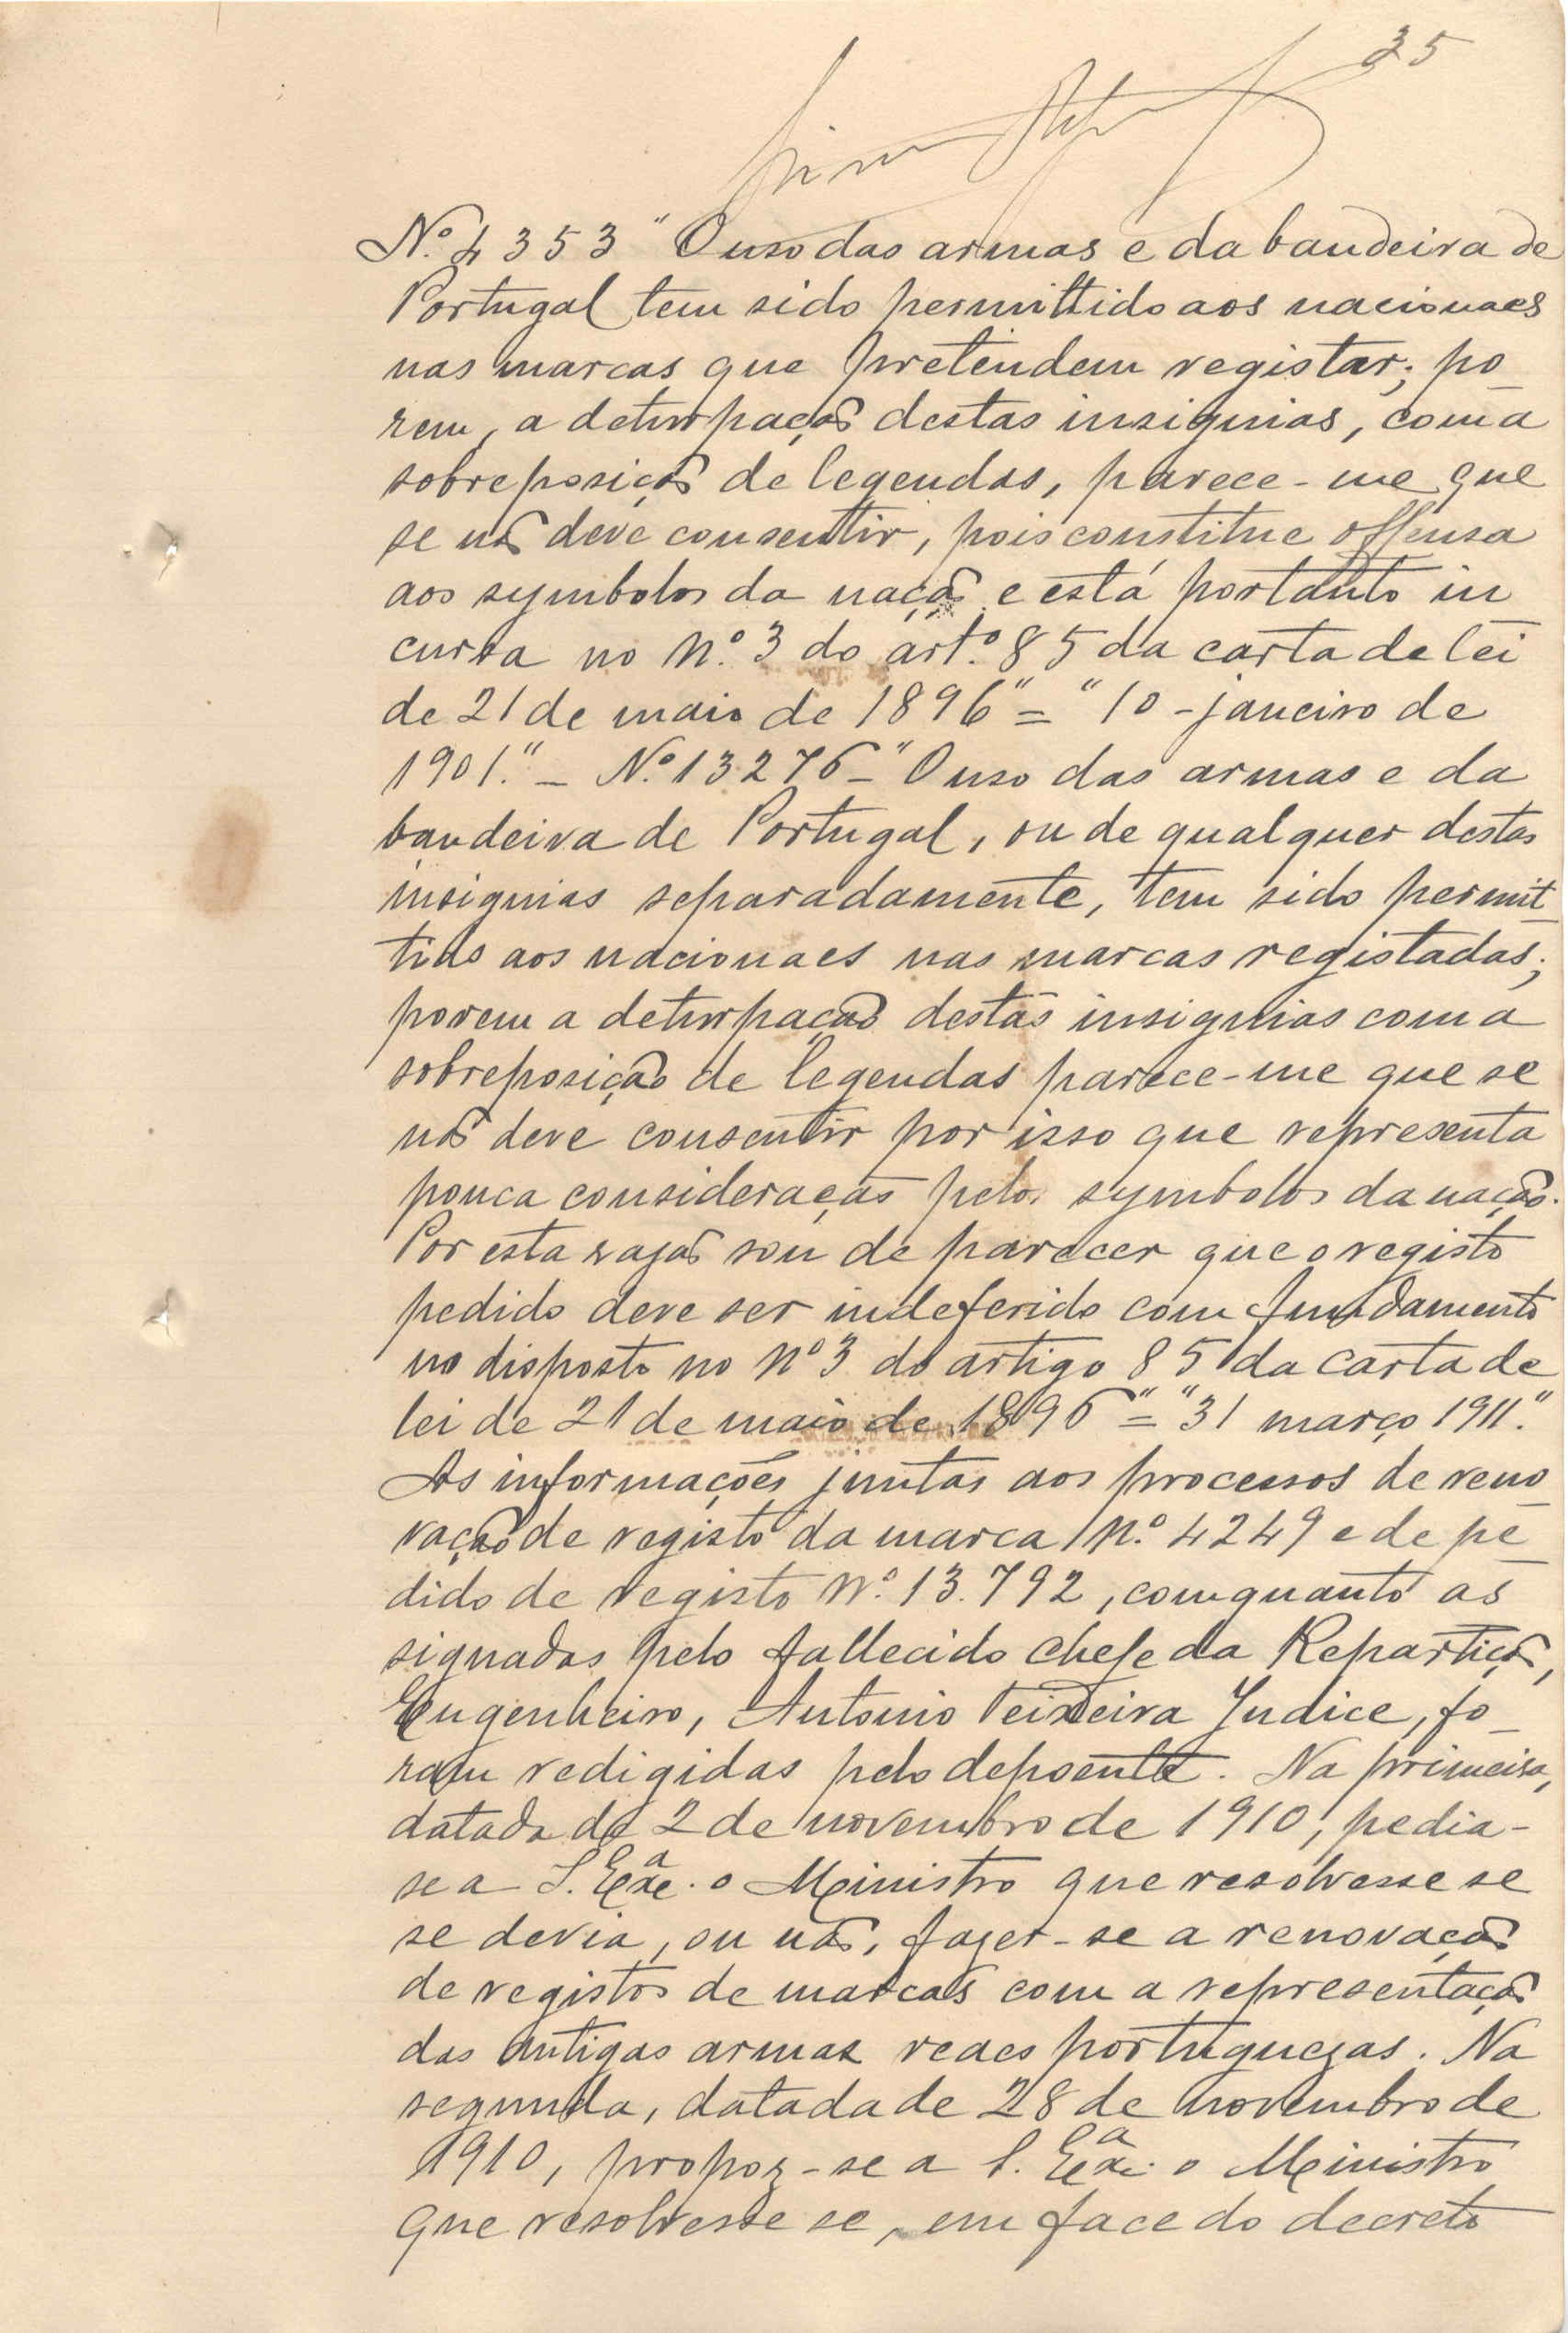 35
Nº. 4353 "O uso das armas e da bandeira de
Portugal tem sido permittido aos nacionaes
nas marcas que pretendem registar; po_
rem, a deturpação destas insignias, com a
sobreposição de legendas, parece-me que
se não deve consentir, pois constitue offensa
aos symbolos da nação e está portanto in
cursa no n.º 3 do art.º 85 da carta de lei
de 21 de maio de 1896" = "10 - janeiro de
1901." - Nº. 13276 - "O uso das armas e da
bandeira de Portugal, ou de qualquer destas
insignias separadamente, tem sido permit_
tido aos nacionaes nas marcas registadas;
porem a deturpação destas insignias com a
sobreposição de legendas parece-me que se
não deve consentir por isso que representa
pouca consideração pelos symbolos da nação.
Por esta razão sou de parecer que o registo
pedido deve ser indeferido com fundamento
no disposto no nº 3 do artigo 85 da carta de
lei de 21 de maio de 1896" = "31 março 1911."
As informações juntas aos processos de reno_
vação de registo da marca n.º 4249 e de pe_
dido de registo n.º 13.792, comquanto as_
signadas pelo fallecido chefe da Repartição,
Engenheiro, Antonio Teixeira Judice, fo_
ram redigidas pelo depoente. Na primeira,
datada de 2 de novembro de 1910, pedia-
se a S. Exa. o Ministro que resolvesse se
se devia, ou não, fazer-se a renovação
de registos de marcas com a representação
das antigas armas reaes portuguezas. Na
segunda, datada de 28 de novembro de
1910, propoz-se a S. Exa. o Ministro
que resolvesse se, em face do decreto